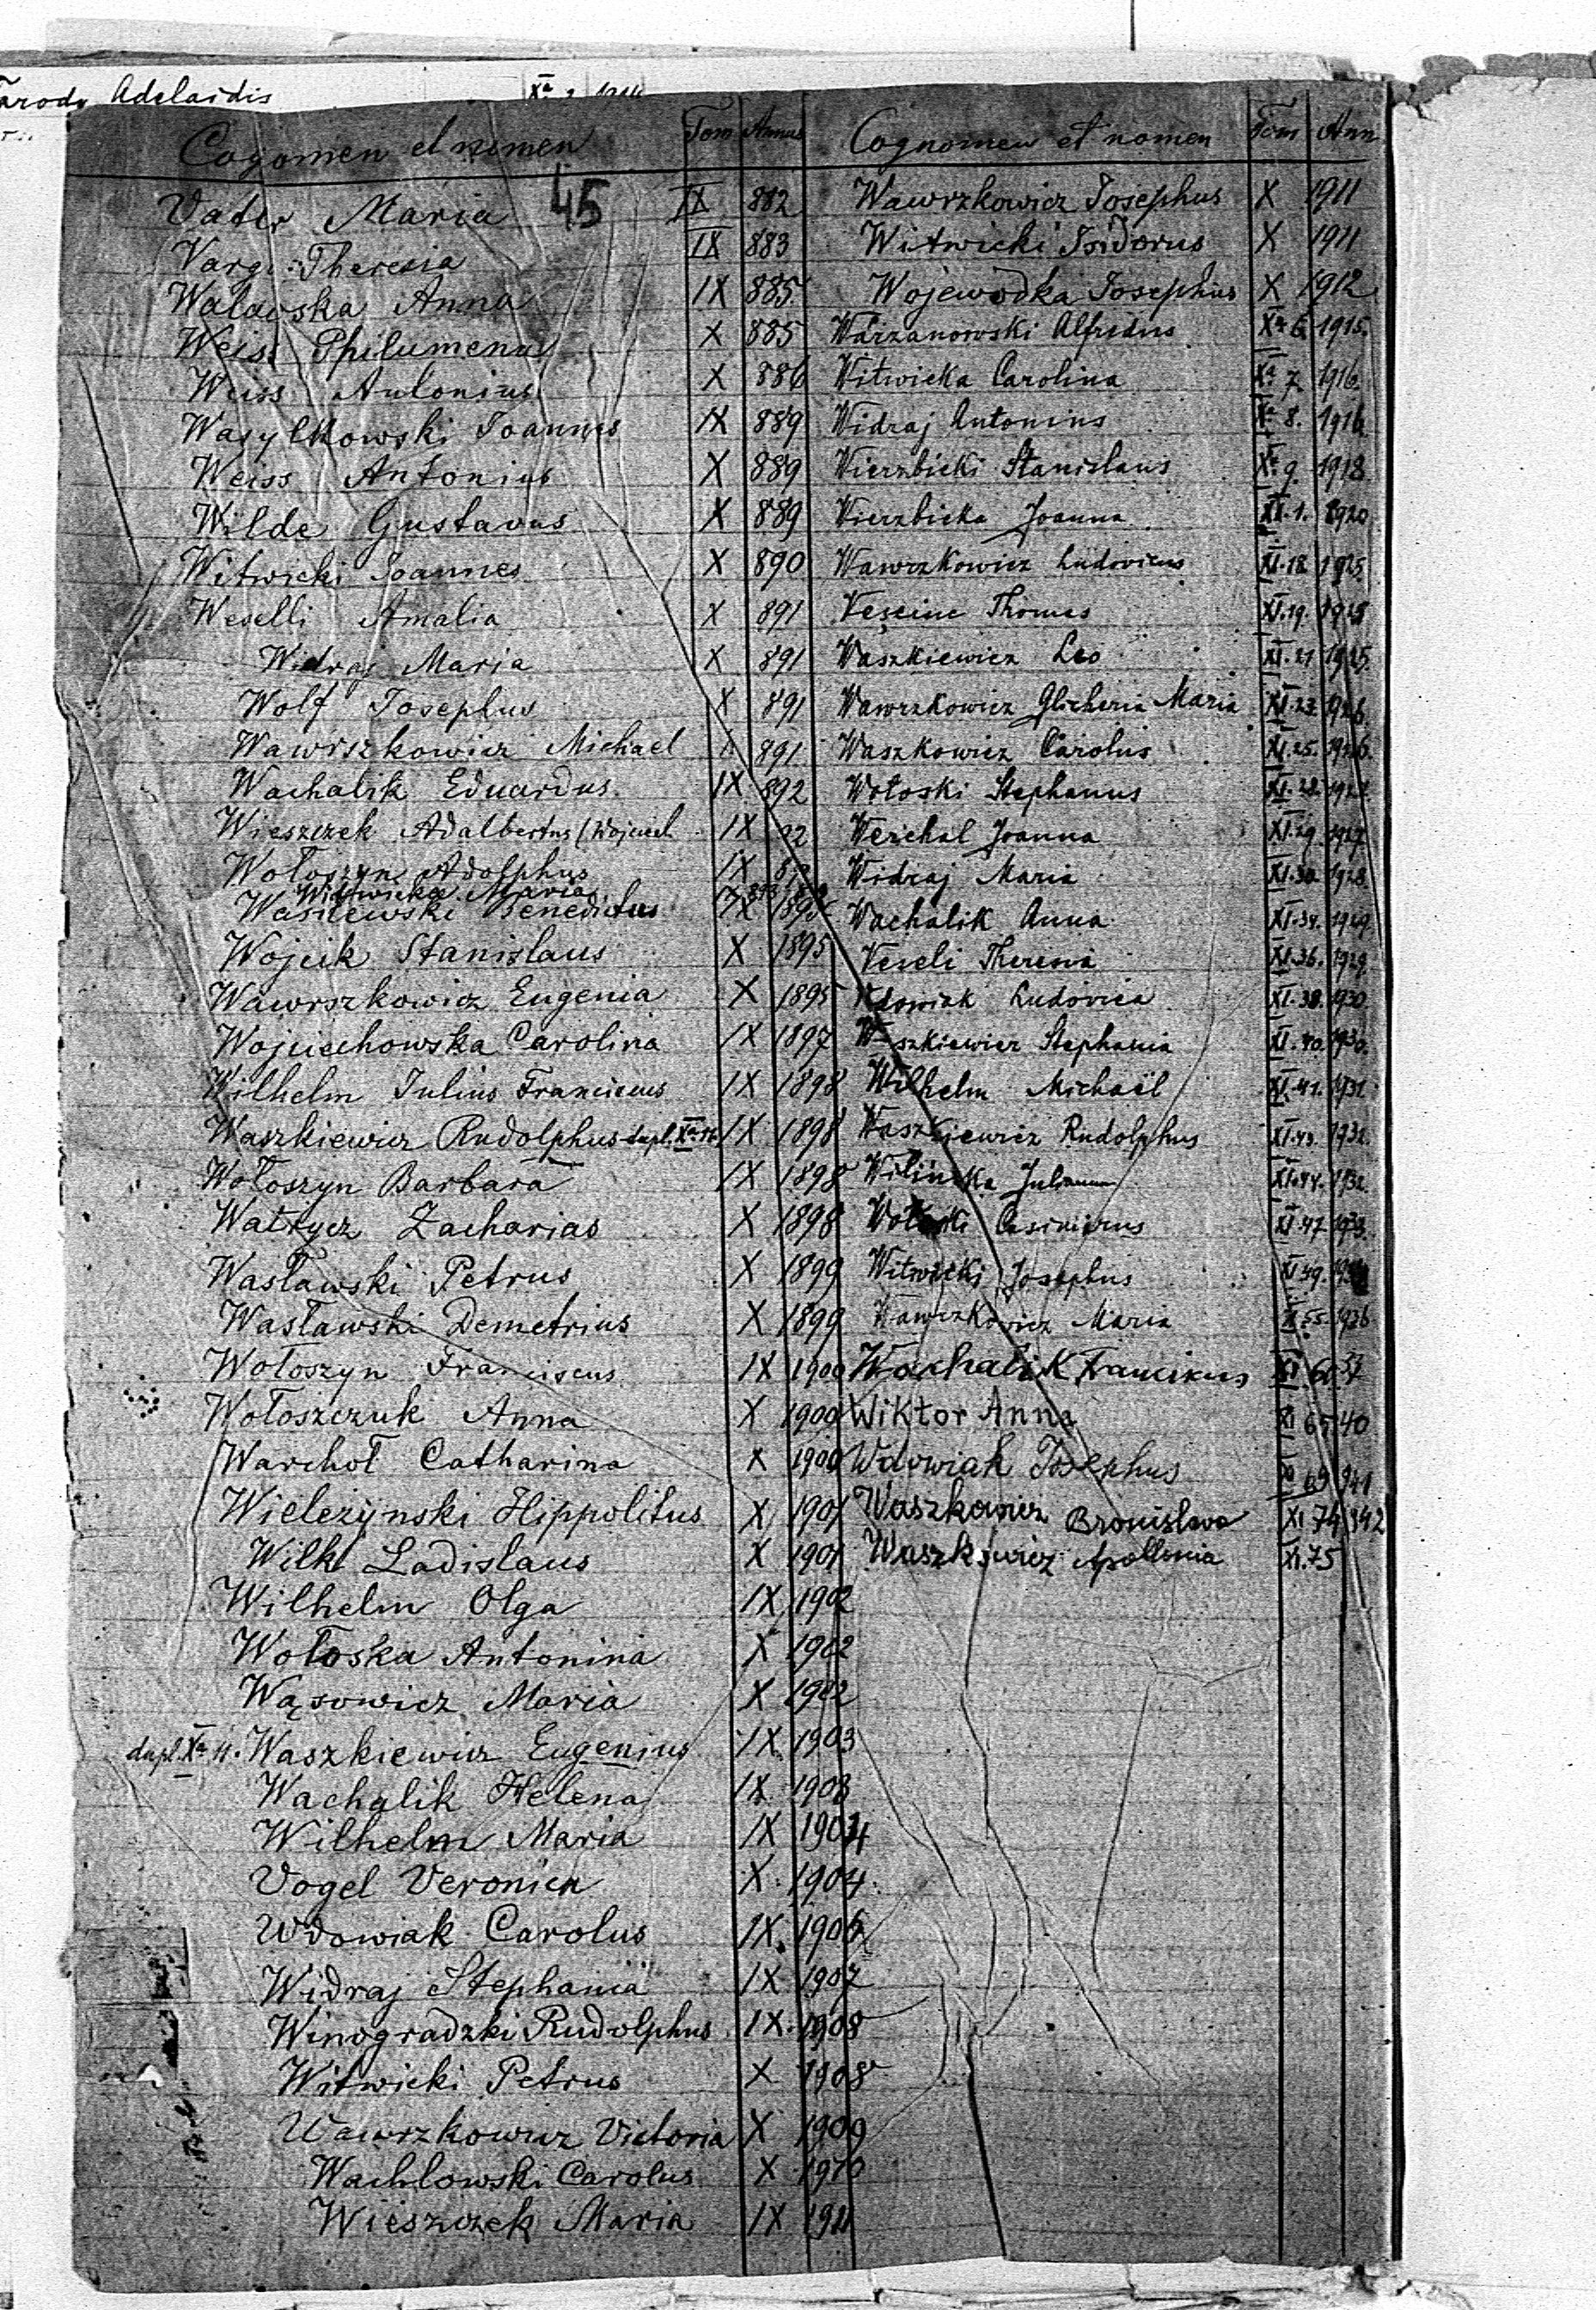 Adelaidis
Cognomen et nomen Tom Annus
45
Vater Maria IX 882
Varga Theresia IX 883
Anna IX 885
Weiss Philumena X 885
Weiss Antonius X 886
Wasylkowski Joannes IX 889
Weiss Antonius X 889
Wilde Gustavus X 889
Witwicki Joannes X 890
Weselli Amalia X 891
Widraj Maria X 891
Wolf Josephus X 891
Wawrszkowicz Michael 891
Wachalik Eduardus IX 892
Wieszczek Adalbertus (Wojciech IX
Wołoszyn Adolphus IX
Witwicka Maria
Wasilewski Benedictus IX 1895
Wojcik Stanislaus X 1895
Wawrszkowicz Eugenia X 1895
Wojciechowska Carolina IX 1897
Wilhelm Julius Franciscus IX 1898
Waszkiewicz Rudolphus dupl. Xa IX 1898
Wołoszyn Barbara IX 1898
Watrycz Zacharias X 1898
Wasławski Petrus X 1899
Wasławski Demetrius X 1899
Wołoszyn Franciscus IX 1900
Wołoszczuk Anna X 1900
Warchoł Catharina X 1900
Wieleżynski Hippolitus X 1901
Wilk Ladislaus X 1901
Wilhelm Olga IX 1902
Wołoska Antonina X 1902
Wąsowicz Maria X 1902
dupl. Xa 11. Waszkiewicz Eugenius IX 1903
Wachalik Helena IX 1903
Wilhelm Maria IX 1904
Vogel Veronica X 1904
Wdowiak Carolus IX 1906
Widraj Stephania IX 1907
Winogradzki Rudolphus IX 1908
Witwicki Petrus X 1908
Wawrzkowicz Victoria X 1909
Wachlowski Carolus X 1910
Wieszczek Maria IX 1911
Cognomen et nomen Tom Ann
Wawrzkowicz Josephus X 1911
Witwicki Isidorus X 1911
Wojewodka Josephus X 1912
Warzanowski Alfridus Xa 6. 1915.
Witwicka Carolina Xa 7. 1916.
Widraj Antonius Xa 8. 1916.
Wierzbicki Stanislaus Xa 9. 1918.
Wierzbicka Joanna XI. 1. 1920
Wawrzkowicz Ludovicus XI. 18. 1925.
Thomas XI. 19.
Waszkiewicz Leo XI. 21 1925.
Wawrzkowicz Glicheria Maria XI. 23. 1926.
Waszkowicz Carolus XI. 25. 1926.
Wołoski Stephanus XI. 28. 1927.
Werchal Joanna XI. 29. 1927
Widraj Maria XI. 30. 1928.
Wachalik Anna XI. 34. 1929.
Veseli Theresia XI. 36. 1929.
Wdowiak Ludovica XI. 38. 1930.
Waszkiewicz Stephania XI. 40. 1930.
Wilhelm Michaël XI. 41. 1931.
Waszkiewicz Rudolphus XI. 43. 1932.
Wilinska XI. 44. 1932.
Wołoski Casimirus XI. 47. 1933.
Witwicki Josephus XI. 49.
Wawrzkowicz Maria XI. 55. 1936
Wachalik Franciscus XI 60 37
Wiktor Anna XI 65 40
Wdowiak Josephus XI 69 941
Waszkowicz Bronislava XI 74 942
Waszkiewicz Apollonia XI. 75